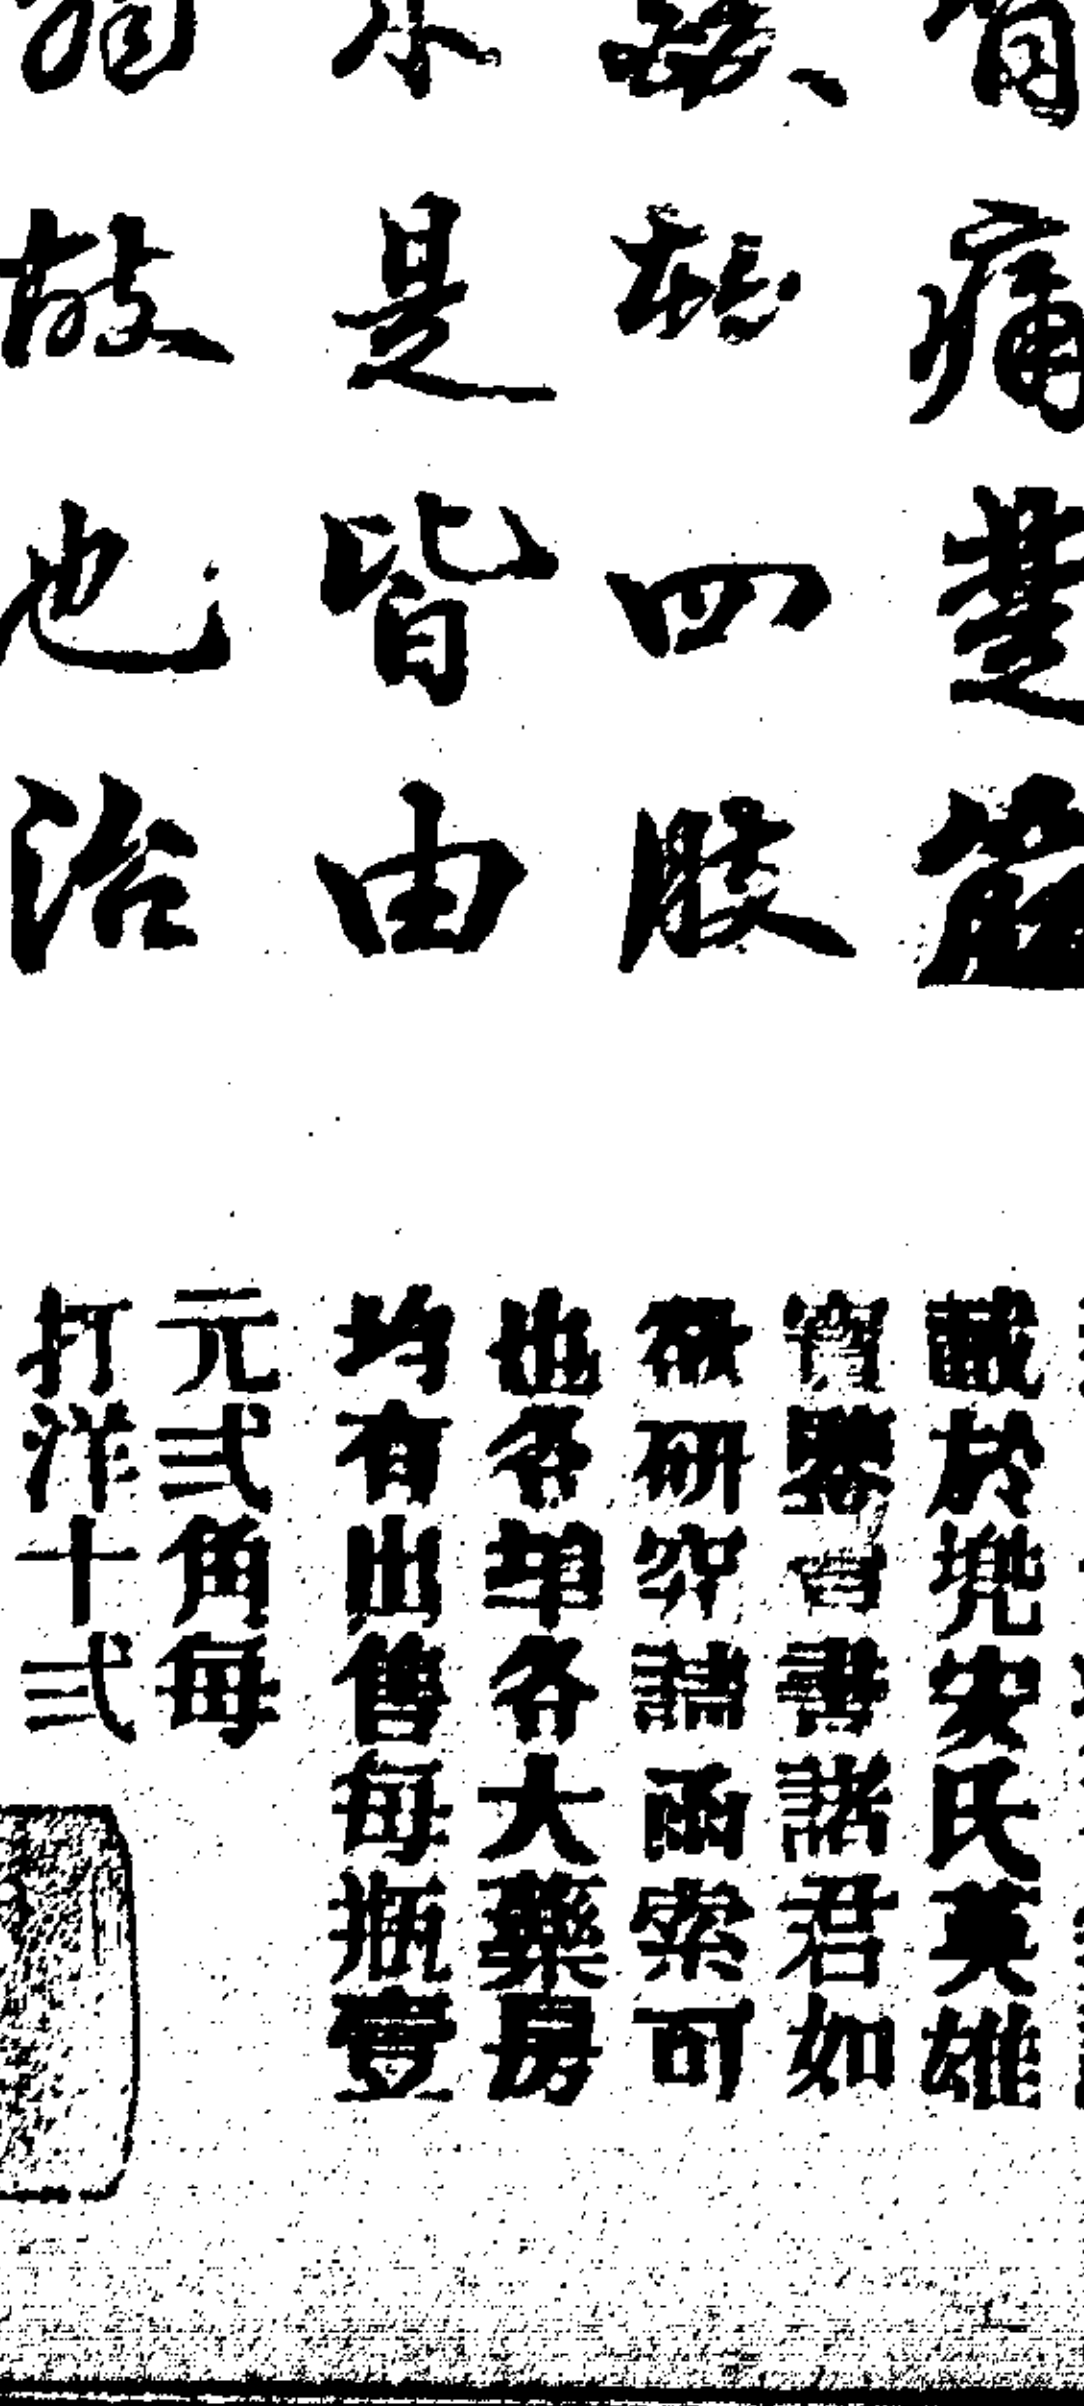 痛楚筋
四肢
是皆由
故也治
載於兜安氏英雄
寶鑑書諸君如
欲研究請函索可
也各埠各大藥房
均有出售每瓶壹
元弍角每
打洋十弍